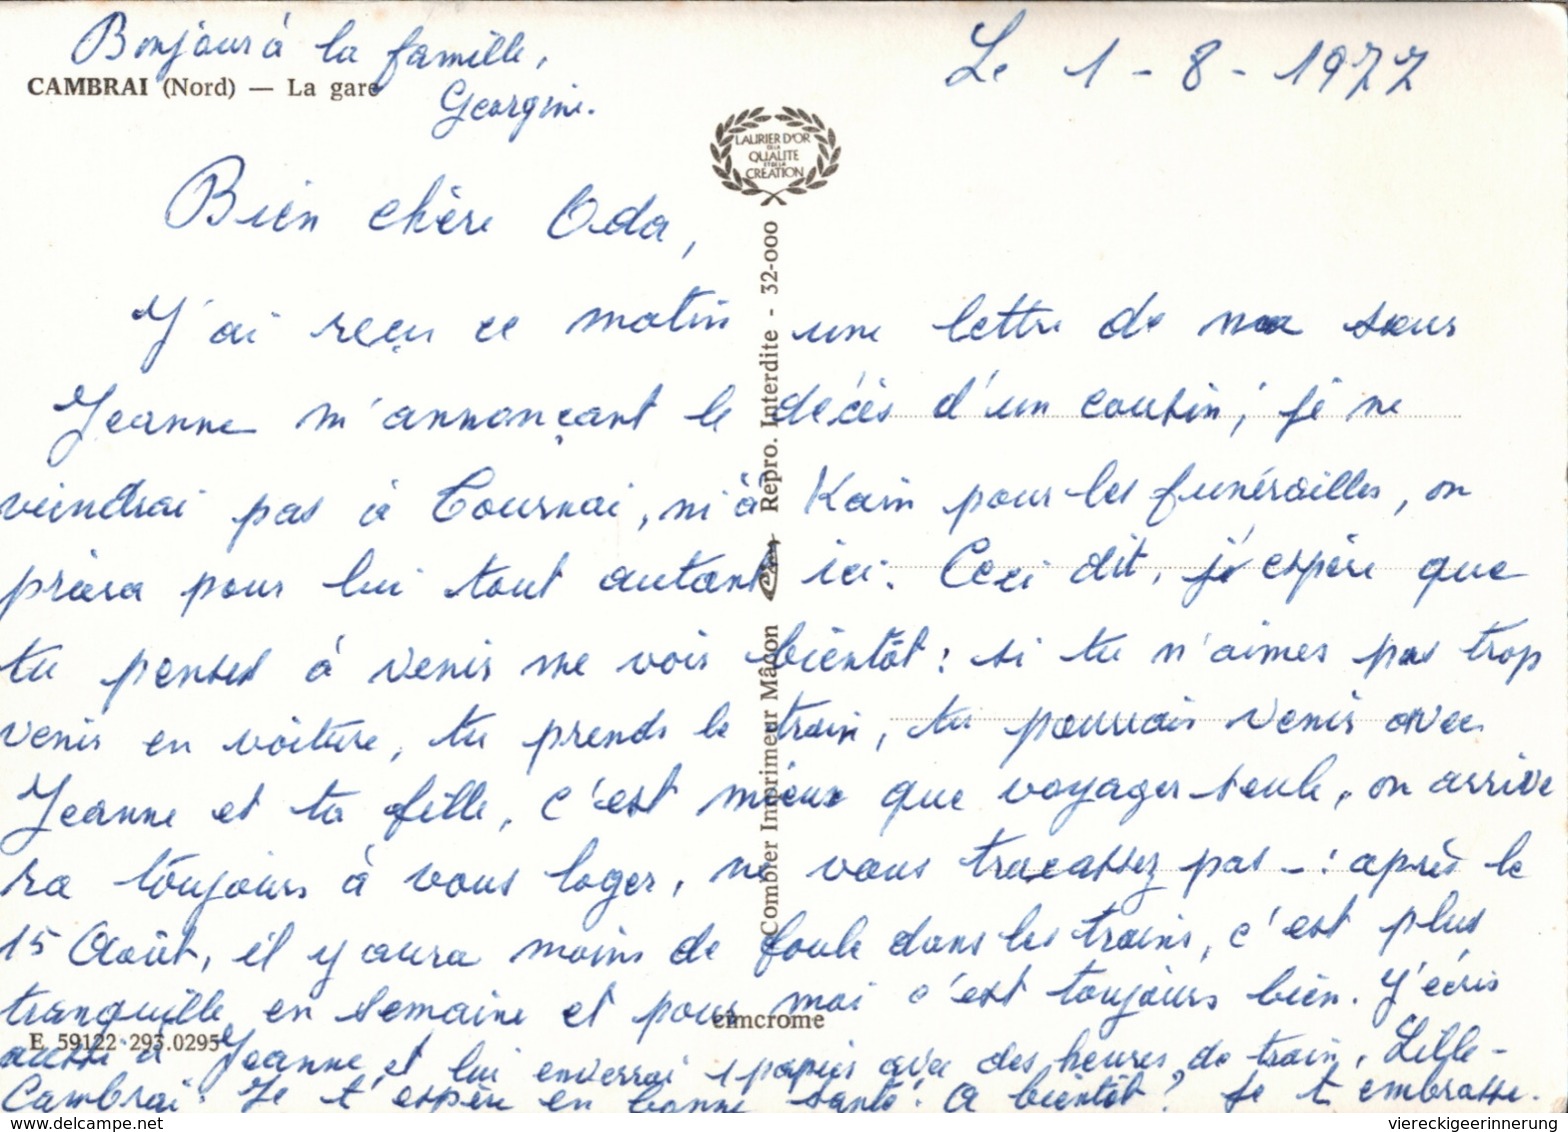 Bonjour à la famille,
Georgine.
CAMBRAI (Nord) — La gare
Le 1-8-1977
LAURIER D'OR
DE LA
QUALITE
ET DE LA
CREATION
Bien chère Oda,
J'ai reçu ce matin une lettre de ma sœur
Jeanne m'annonçant le décès d'un cousin, je ne
viendrai pas à Tournai, ni à Kain pour les funérailles, on
priera pour lui tout autant ici. Ceci dit, j'espère que
tu penses à venir me voir bientôt : si tu n'aimes pas trop
venir en voiture, tu prends le train, tu pourrais venir avec
Jeanne et ta fille, c'est mieux que voyager seule, on arrive
ra toujours à vous loger, ne vous tracassez pas - : après le
15 Août, il y aura moins de foule dans les trains, c'est plus
tranquille en semaine et pour moi c'est toujours bien. J'écris
aussi à Jeanne et lui enverrai 1 papier avec des heures de train, Lille-
Cambrai. Je t'espère en bonne santé. A bientôt ? Je t'embrasse.
Combier Imprimeur Mâcon Repro. Interdite - 32-000
cimcrome
E 59122 293.0295
www.delcampe.net
viereckigeerinnerung